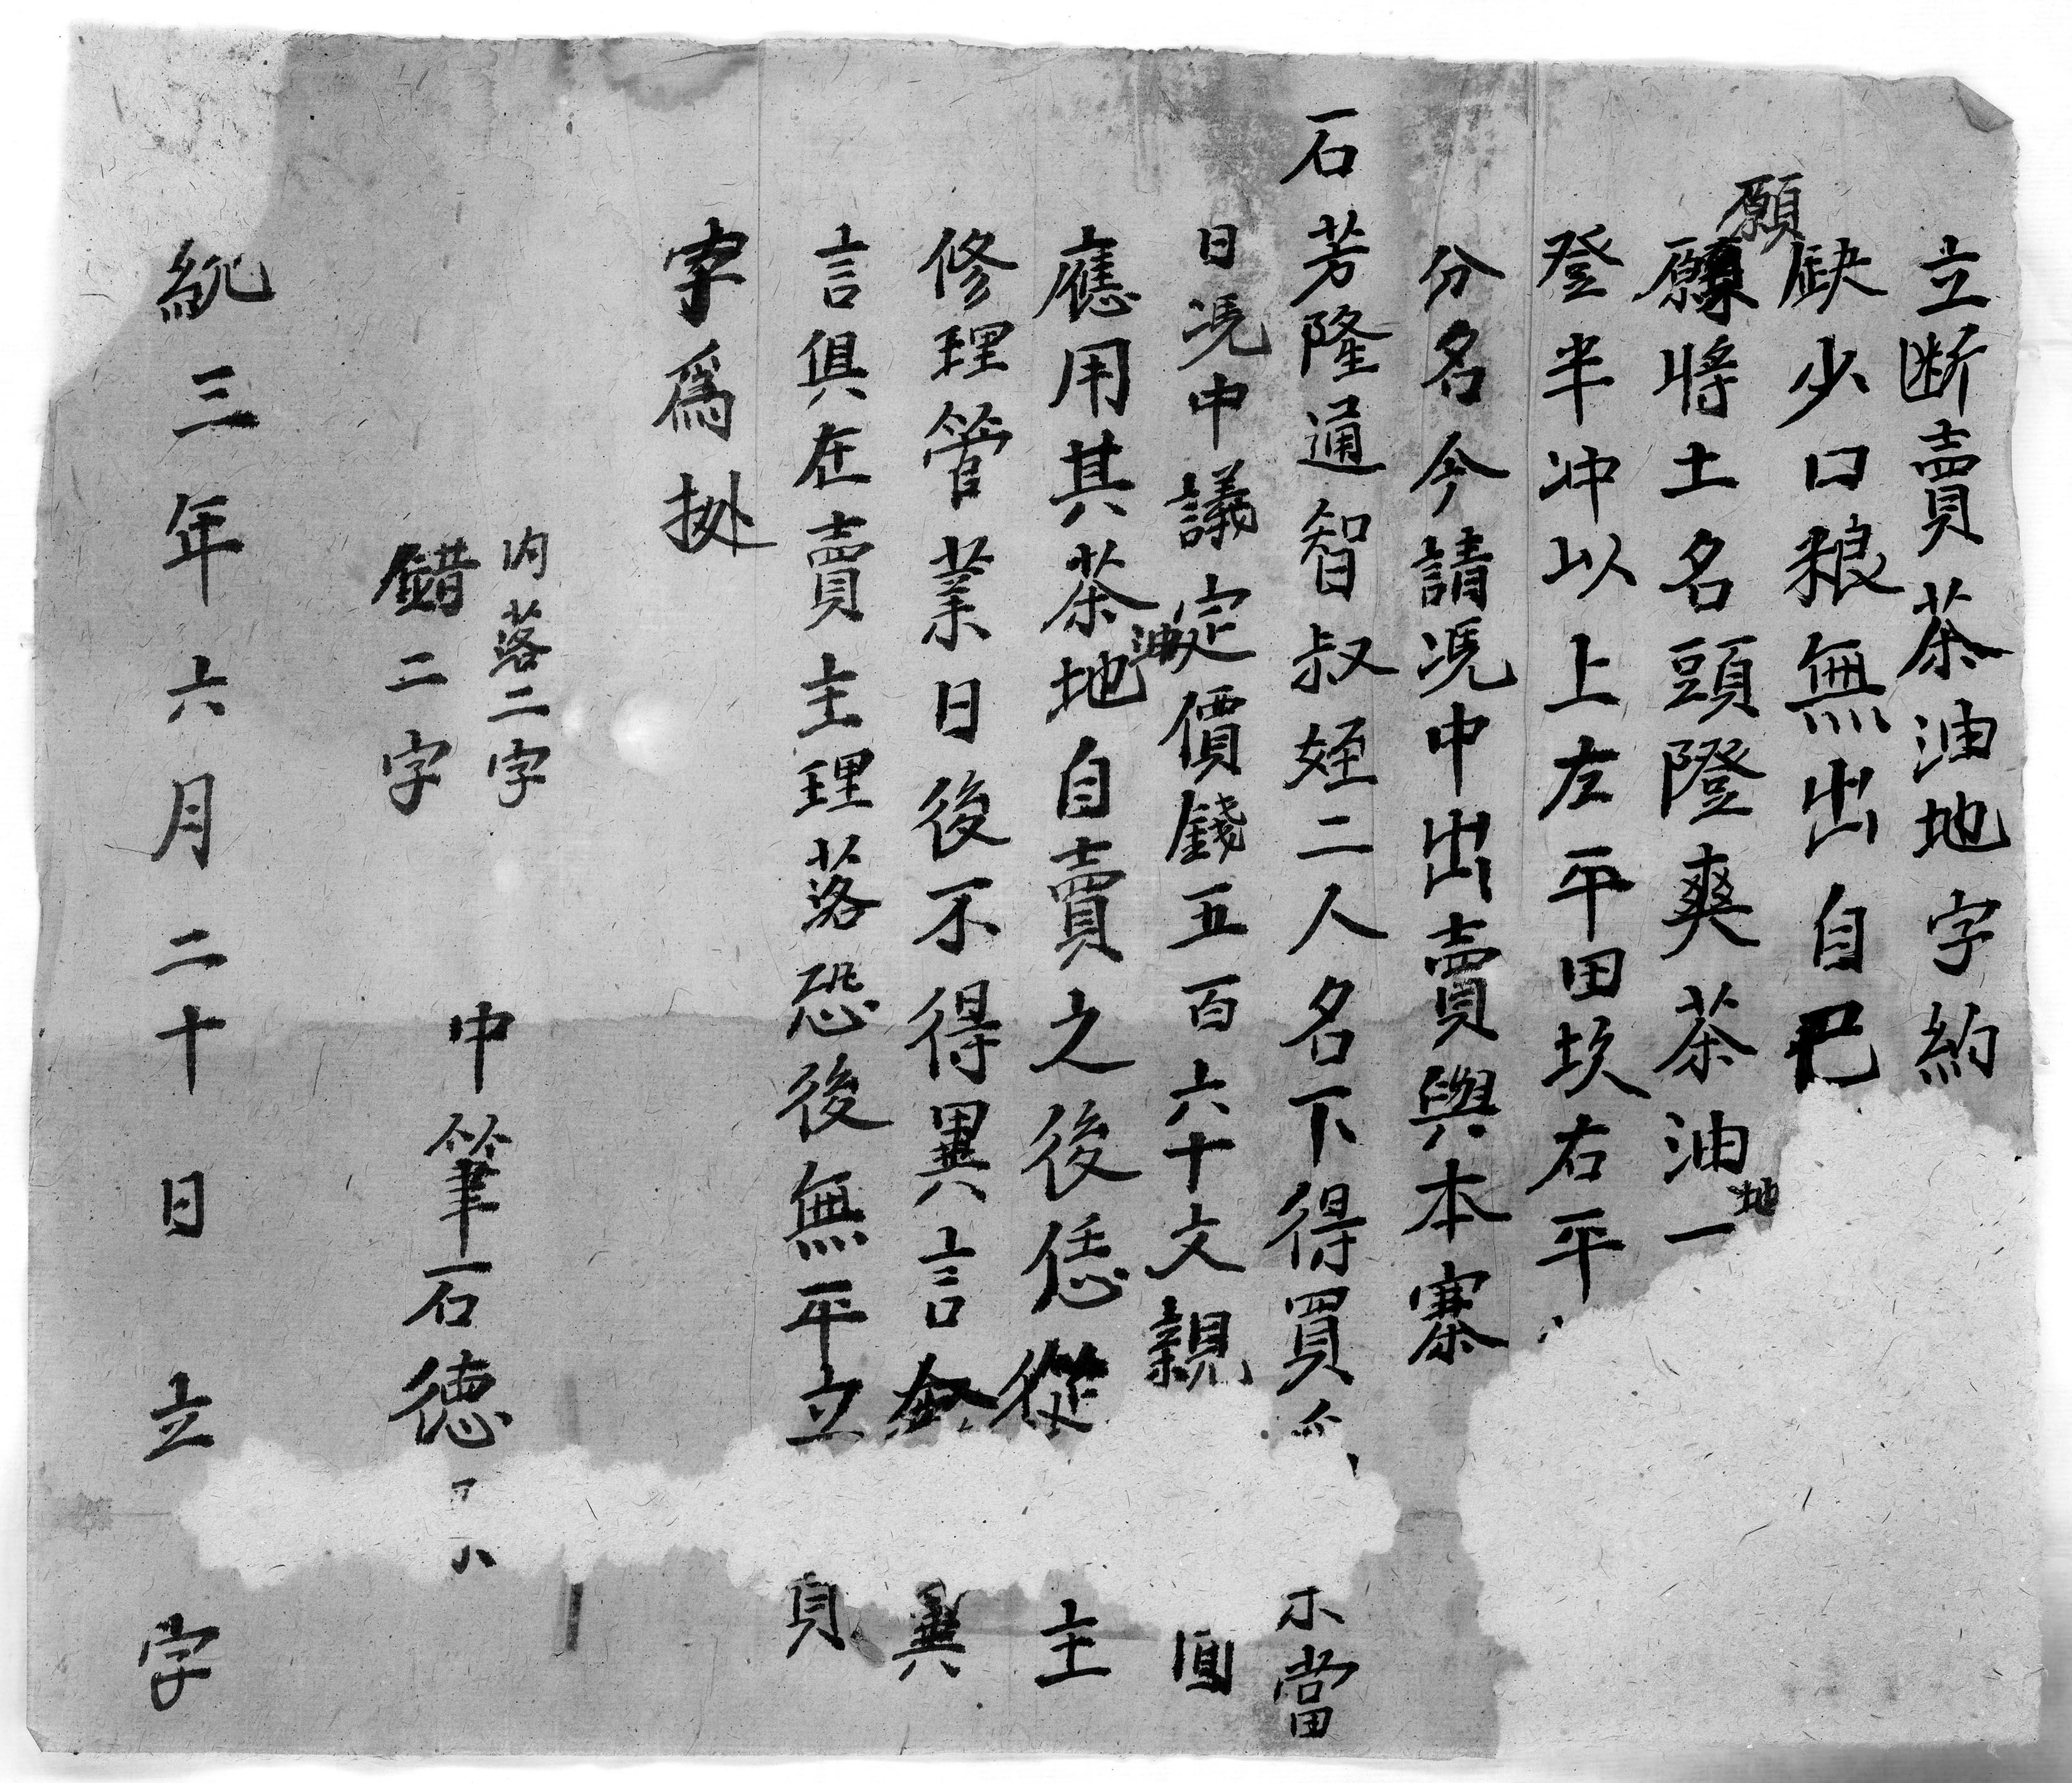 立断賣茶油地字約
缺少口粮無出自己
願願將土名頭隥爽茶油地一
登半冲以上左平田坎右平
分名今請凭中出賣與本寨
石芳隆通智叔姪二人名下得買
當
日凭中議定價錢五百六十文親
應用其茶油地自賣之後恁從
主
修理管業日後不得異言
異
言俱在賣主理落恐後無平立
字為挀
内落二字
錯二字
中筆石德
統三年六月二十日立字